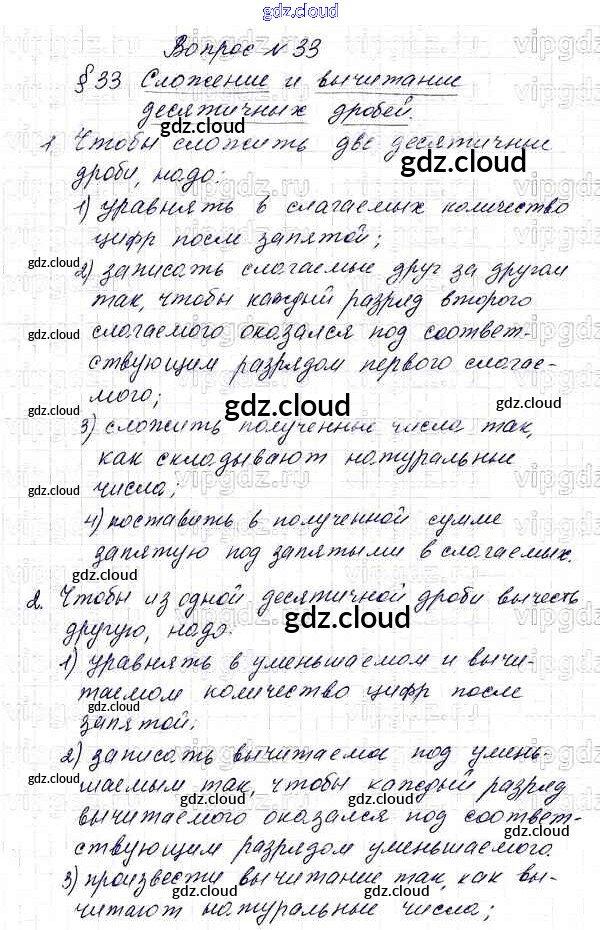 gdz.cloud
Вопрос №33
§33 Сложение и вычитание
десятичных дробей.
1. Чтобы сложить две десятичные
дроби, надо:
1) уравнять в слагаемых количество
цифр после запятой;
2) записать слагаемые друг за другом
так, чтобы каждый разряд второго
слагаемого оказался под соответ-
ствующим разрядом первого слагае-
мого;
3) сложить полученные числа так,
как складывают натуральные
числа;
4) поставить в полученной сумме
запятую под запятыми в слагаемых.
2. Чтобы из одной десятичной дроби вычесть
другую, надо:
1) уравнять в уменьшаемом и вычи-
таемом количество цифр после
запятой;
2) записать вычитаемое под умень-
шаемым так, чтобы каждый разряд
вычитаемого оказался под соответ-
ствующим разрядом уменьшаемого.
3) произвести вычитание так, как вы-
читают натуральные числа;